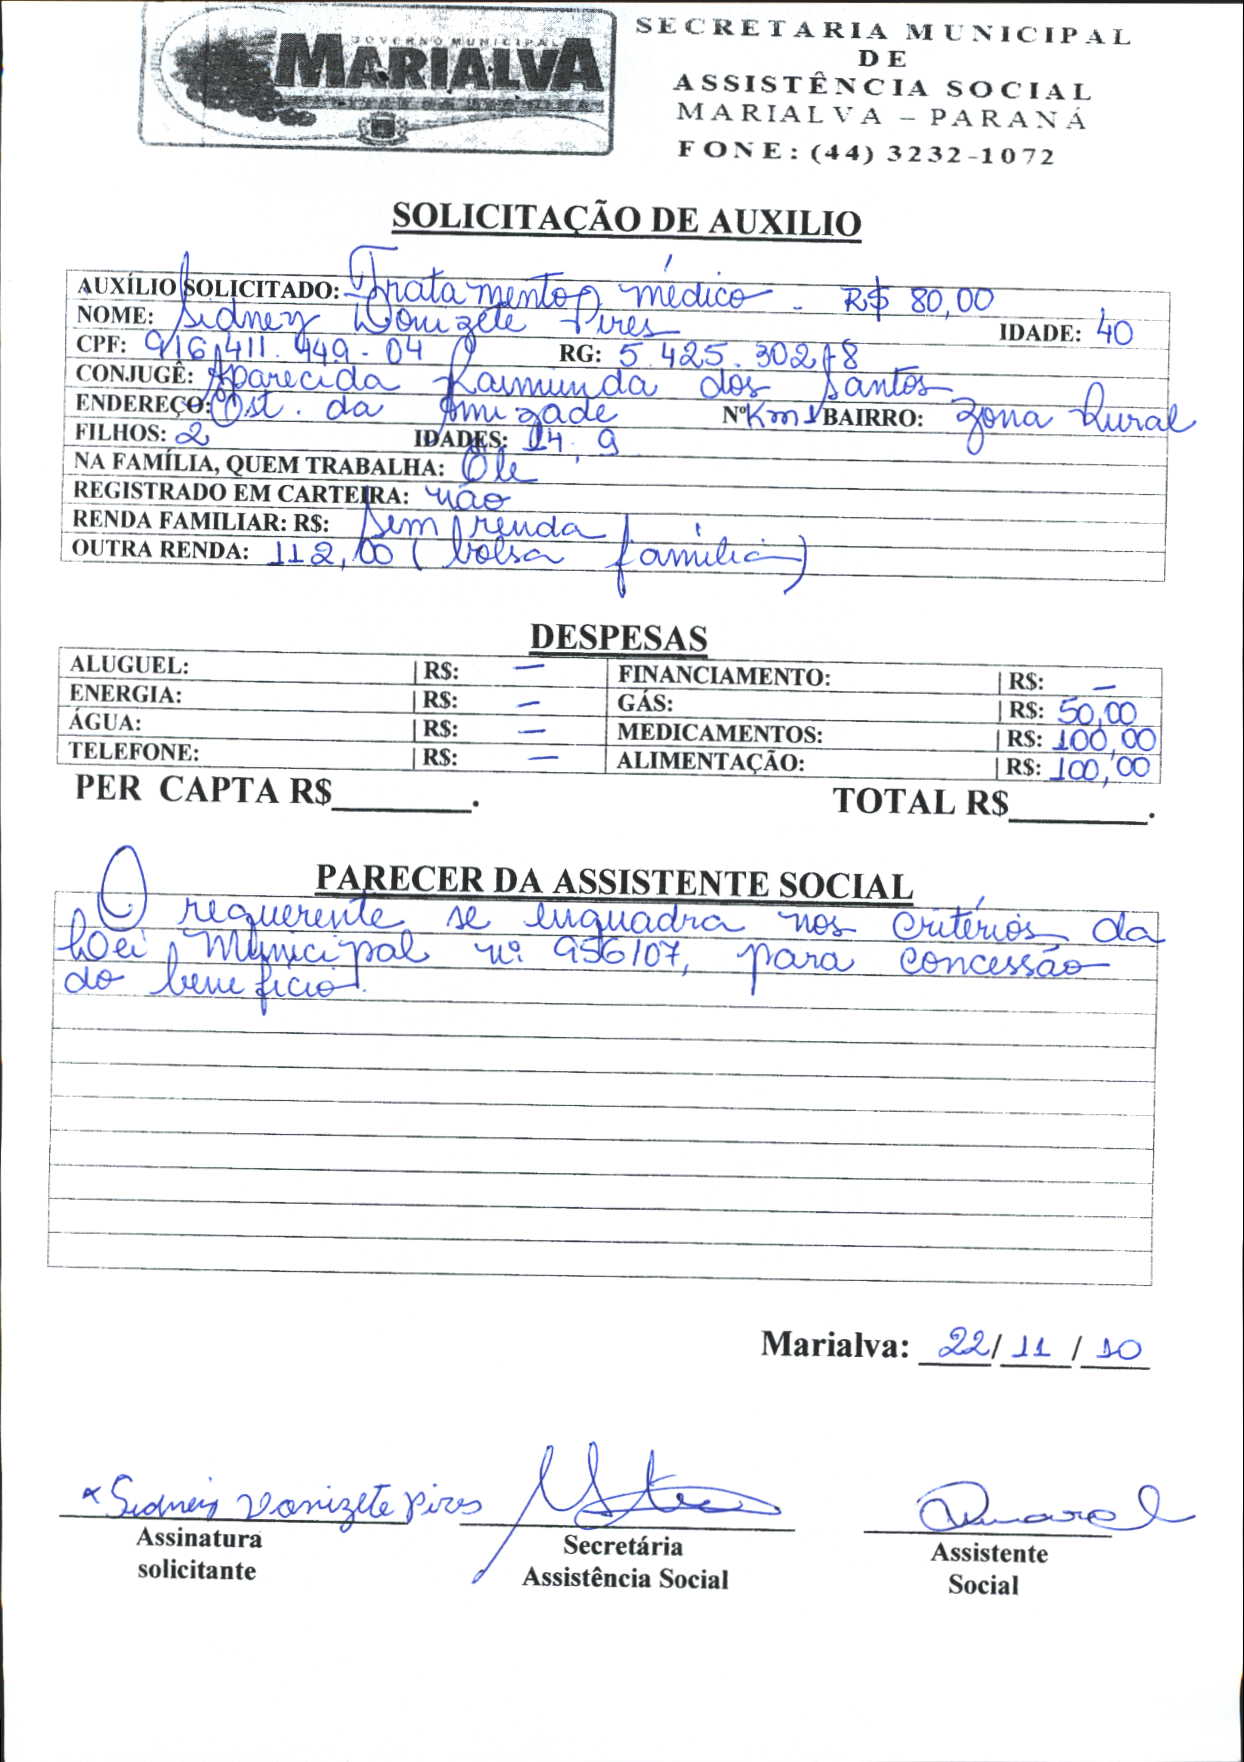 GOVERNO MUNICIPAL
MARIALVA
SECRETARIA MUNICIPAL
DE
ASSISTÊNCIA SOCIAL
MARIALVA – PARANÁ
FONE: (44) 3232-1072
SOLICITAÇÃO DE AUXILIO
AUXÍLIO SOLICITADO: Tratamento médico - R$ 80,00
NOME: Sidney Donizete Pires IDADE: 40
CPF: 916.411.449-04 RG: 5.425.302-8
CONJUGÊ: Aparecida Raimunda dos Santos
ENDEREÇO: Est. da Amizade Nº Km 1 BAIRRO: Zona Rural
FILHOS: 2 IDADES: 14, 9
NA FAMÍLIA, QUEM TRABALHA: Ele
REGISTRADO EM CARTEIRA: não
RENDA FAMILIAR: R$: Sem renda
OUTRA RENDA: 112,00 (bolsa família)
DESPESAS
ALUGUEL: R$: — FINANCIAMENTO: R$: —
ENERGIA: R$: — GÁS: R$: 50,00
ÁGUA: R$: — MEDICAMENTOS: R$: 100,00
TELEFONE: R$: — ALIMENTAÇÃO: R$: 100,00
PER CAPTA R$_______. TOTAL R$_______.
PARECER DA ASSISTENTE SOCIAL
O requerente se enquadra nos critérios da
Lei Municipal nº 956/07, para concessão
do benefício.
Marialva: 22/11/10
x Sidney Donizete Pires
Assinatura Secretária Assistente
solicitante Assistência Social Social